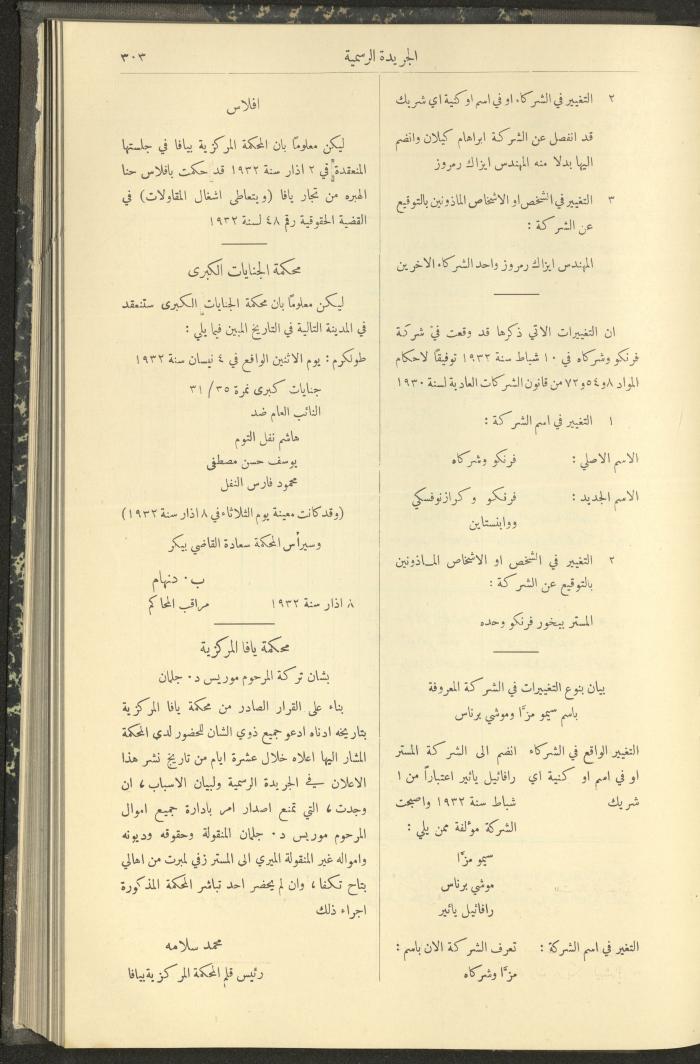 الجريدة الرسمية
٣٠٣
٢ التغيير في الشركاء او في اسم او كنية اي شريك
قد انفصل عن الشركة ابراهام كيلان وانضم
اليها بدلا منه المهندس ايزاك رمروز
٣ التغيير في الشخص او الاشخاص الماذونين بالتوقيع
عن الشركة :
المهندس ايزاك رمروز واحد الشركاء الاخرين
ان التغييرات الاتي ذكرها قد وقعت في شركة
فرنكو وشركاه في ١٠ شباط سنة ١٩٣٢ توفيقًا لاحكام
المواد ٨ و٥٤ و٧٢ من قانون الشركات العادية لسنة ١٩٣٠
١ التغيير في اسم الشركة :
الاسم الاصلي : فرنكو وشركاه
الاسم الجديد : فرنكو وكرازنوفسكي
ووابنستاين
٢ التغيير في الشخص او الاشخاص الماذونين
بالتوقيع عن الشركة :
المستر بيخور فرنكو وحده
بيان بنوع التغييرات في الشركة المعروفة
باسم سيمو مزًا وموشي برناس
التغيير الواقع في الشركاء انضم الى الشركة المستر
او في اسم او كنية اي رافائيل يائير اعتباراً من ١
شريك شباط سنة ١٩٣٢ واصبحت
الشركة مؤلفة ممن يلي :
سيمو مزًا
موشي برناس
رافائيل يائير
التغير في اسم الشركة : تعرف الشركة الان باسم :
مزًا وشركاه
افلاس
ليكن معلومًا بان المحكمة المركزية بيافا في جلستها
المنعقدة في ٢ اذار سنة ١٩٣٢ قد حكمت بافلاس حنا
الهبره من تجار يافا (ويتعاطى اشغال المقاولات) في
القضية الحقوقية رقم ٤٨ لسنة ١٩٣٢
محكمة الجنايات الكبرى
ليكن معلومًا بان محكمة الجنايات الكبرى ستنعقد
في المدينة التالية في التاريخ المبين فيما يلي :
طولكرم : يوم الاثنين الواقع في ٤ نيسان سنة ١٩٣٢
جنايات كبرى نمرة ٣٥/ ٣١
النائب العام ضد
هاشم نفل التوم
يوسف حسن مصطفى
محمود فارس النفل
(وقد كانت معينة يوم الثلاثاء في ٨ اذار سنة ١٩٣٢)
وسيرأس المحكمة سعادة القاضي بيكر
ب٠ دنهام
٨ اذار سنة ١٩٣٢ مراقب المحاكم
محكمة يافا المركزية
بشان تركة المرحوم موريس د٠ جلمان
بناء على القرار الصادر من محكمة يافا المركزية
بتاريخه ادناه ادعو جميع ذوي الشان للحضور لدى المحكمة
المشار اليها اعلاه خلال عشرة ايام من تاريخ نشر هذا
الاعلان في الجريدة الرسمية ولبيان الاسباب ، ان
وجدت ، التي تمنع اصدار امر بادارة جميع اموال
المرحوم موريس د٠ جلمان المنقولة وحقوقه وديونه
وامواله غير المنقولة الميري الى المستر زفي لمبرت من اهالي
بتاح تكفا ، وان لم يحضر احد تباشر المحكمة المذكورة
اجراء ذلك
محمد سلامه
رئيس قلم المحكمة المركزية بيافا